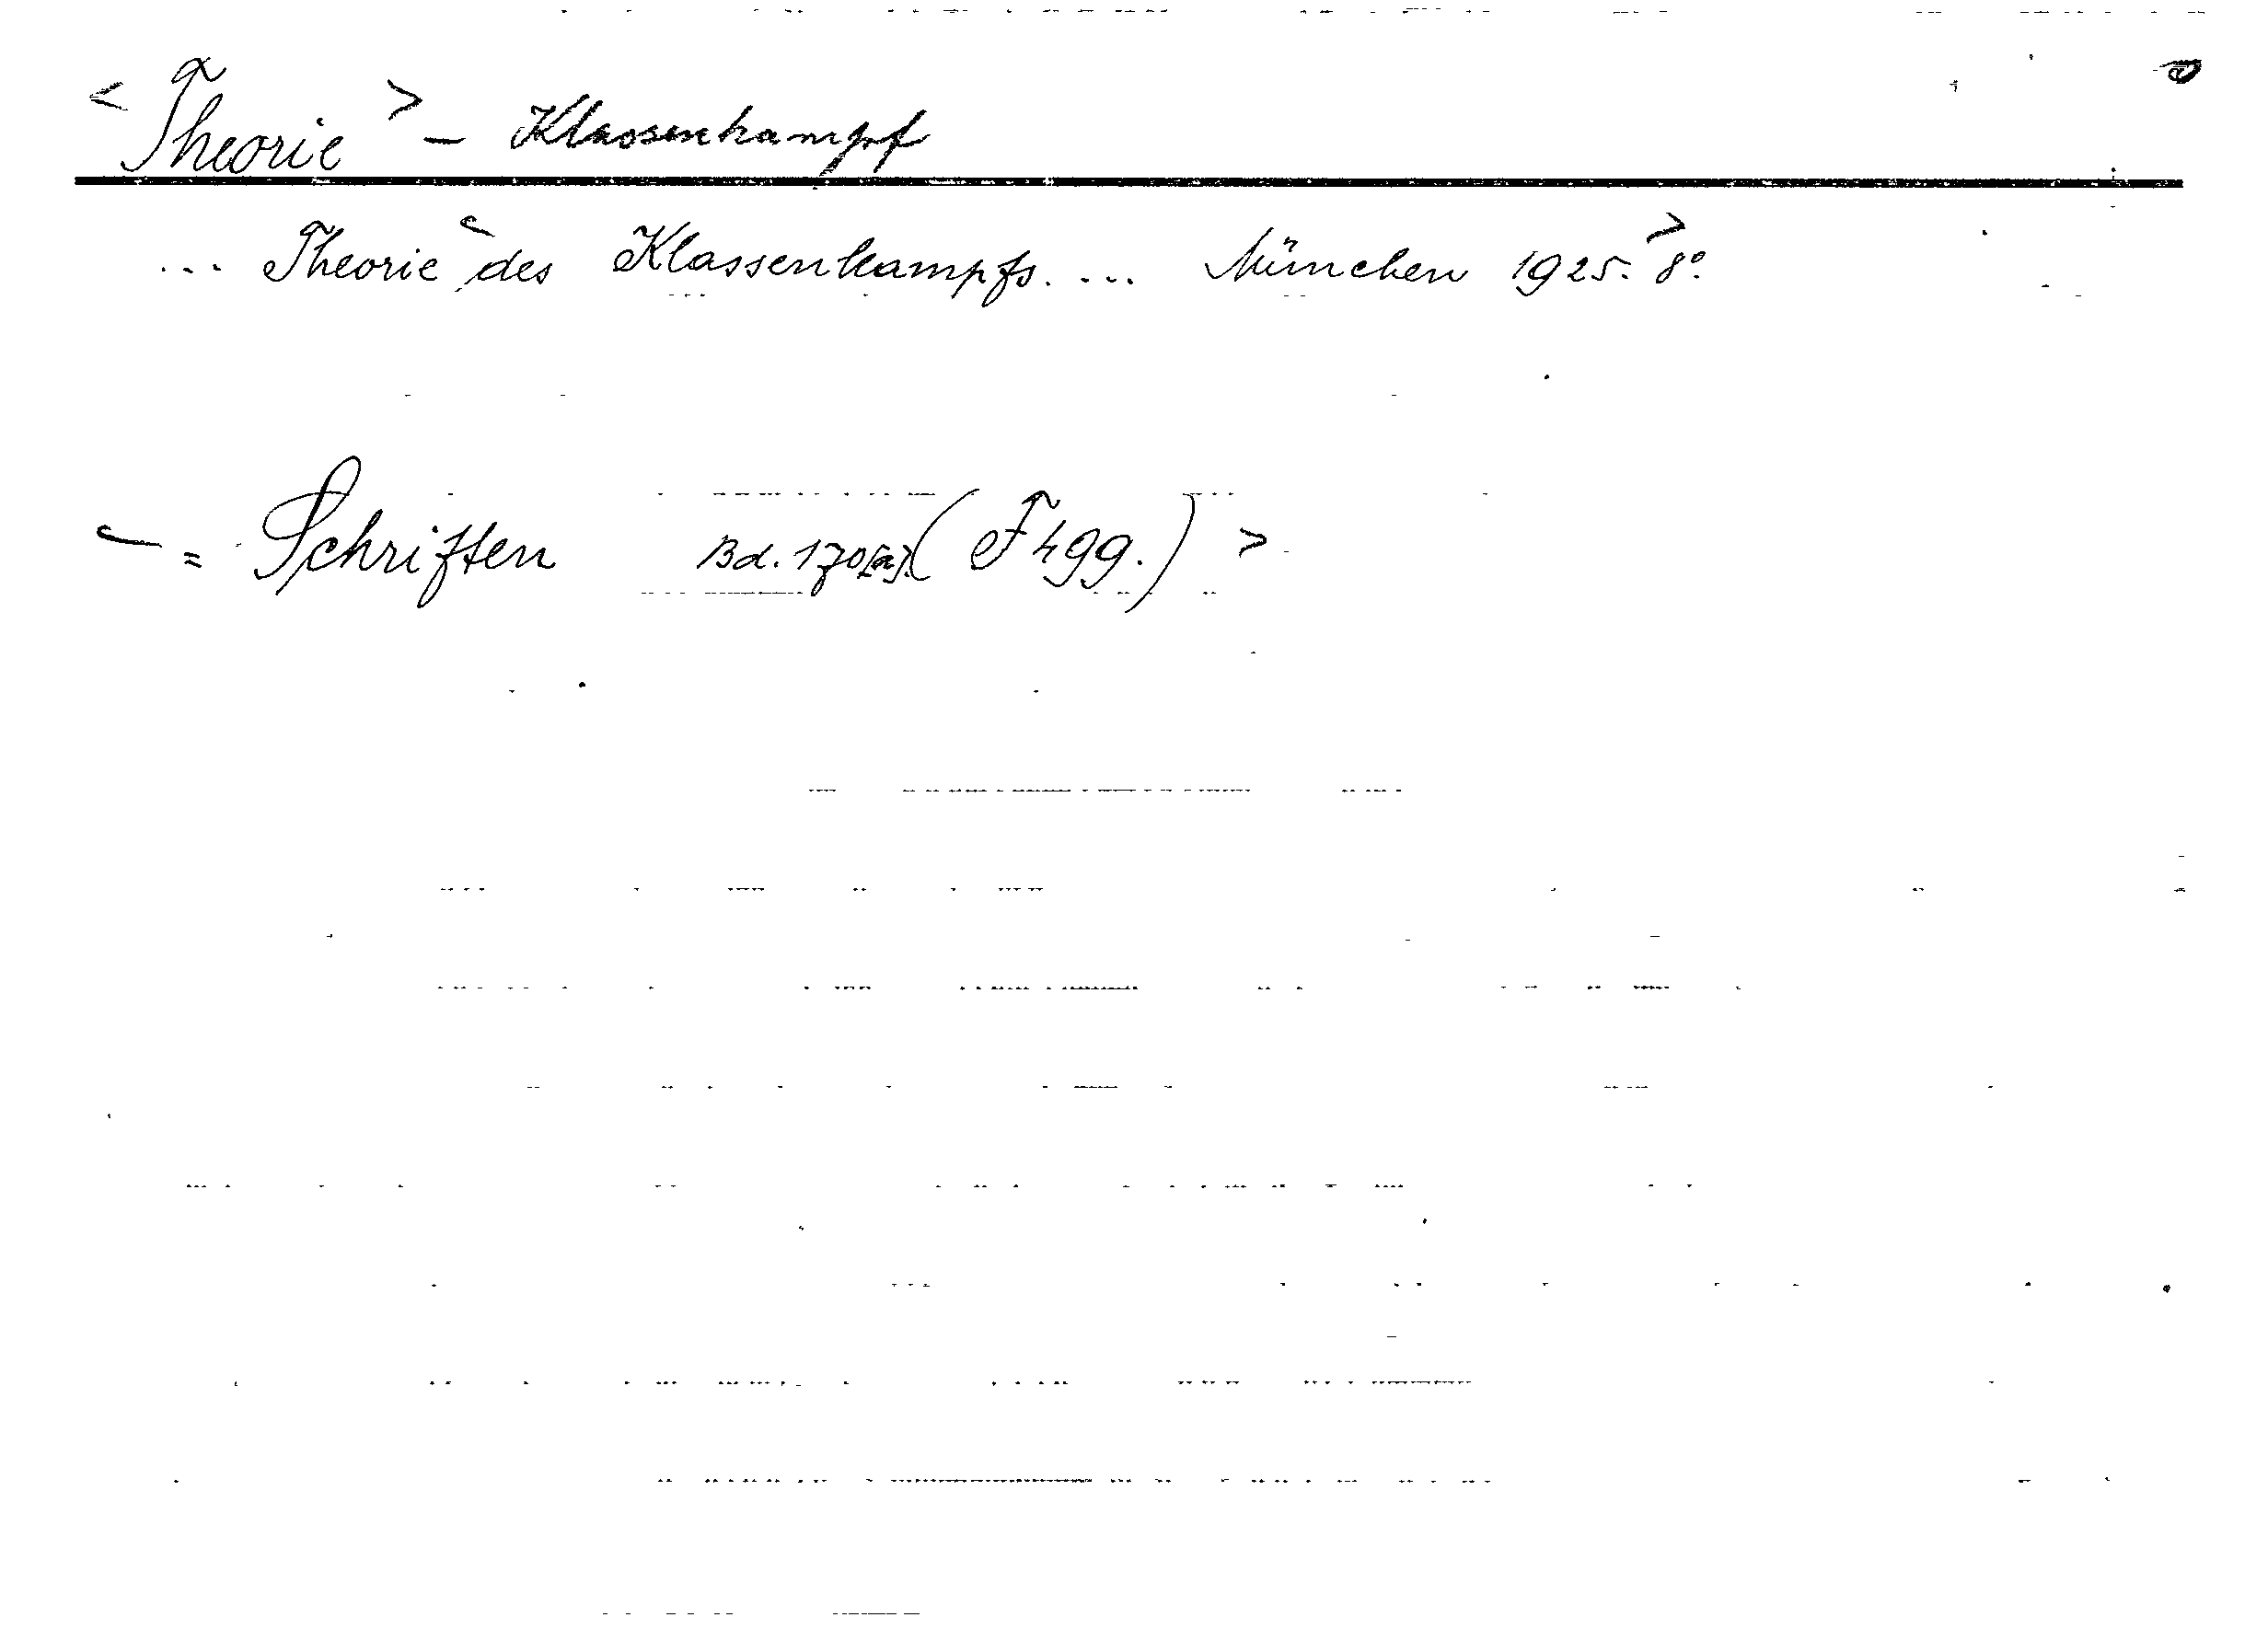 < Theorie > – Klassenkampf
... Theorie < des Klassenkampfs. ... München 1925. > 8°.
< = Schriften Bd. 170[a]. (F 499.) >